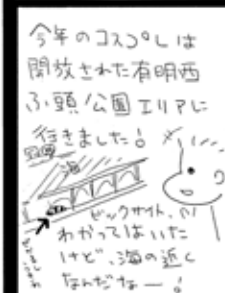 今年のコスプレは
開放された有明西
ふ頭公園エリアに
行きました!
海
ビックサイト、
わかってはいた
けど、海の近く
なんだなー!